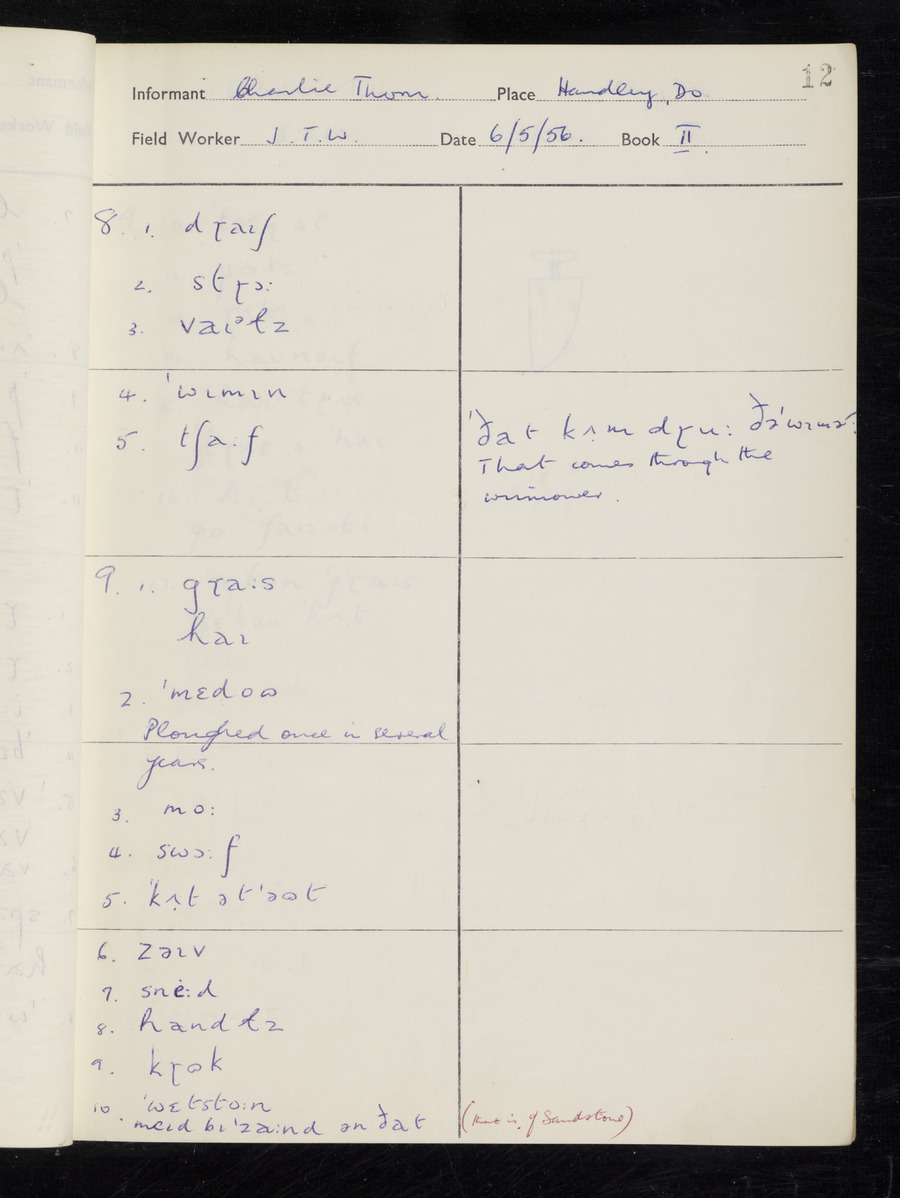 12
Informant Charlie Thorn. Place Handley, Do
Field Worker J. T. W. Date 6/5/56. Book II
8. 1. dɽaɪʃ
2. stɽɔː
3. vaɪᵊɫz
4. ˈwɪmɪn
5. tʃaːf
ˈðat kʌm dɽuː ðəˈwɪməɽ
That comes through the
winnower.
9. 1. gɽaːs
haɪ
2. ˈmɛdoʊ
Ploughed once in several
years.
3. moː
4. swɔːf
5. ˈkʌt ətˈəʊt
6. zəɪv
7. sneːd
8. handɫz
9. kɽʊk
10. ˈwɛtstoːn
meɪd bɪˈzaːnd ən ðat
(that is, of Sandstone)